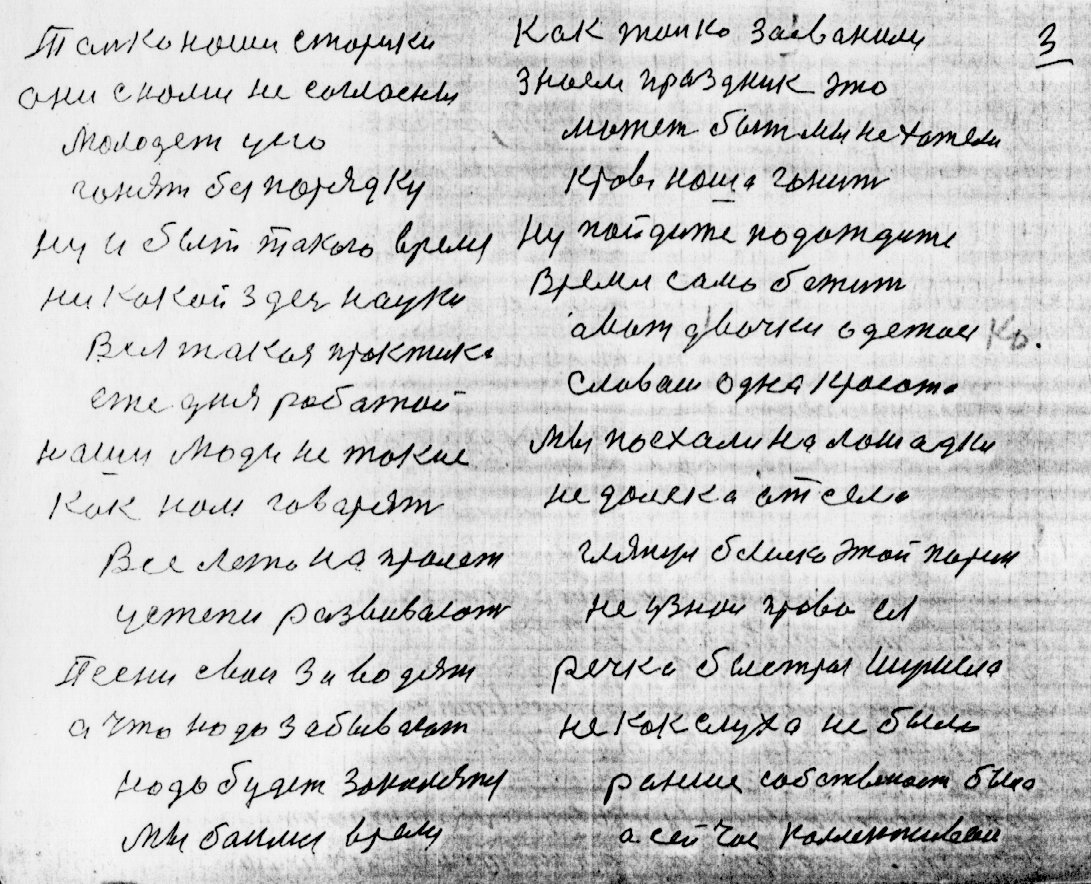 3
Толко наши старики
они снами не согласны
Молодеж учо
гонят бес порядку
ну и быт такого время
ни какой здец науки
Вся такая практика
еже дня работой
наши люди не такие
Как нам говарят
Все лето на пролет
устепи развивают
Песни свои заводят
а что надо забывают
надо будет
Мы баили время
Как толко
Знаем праздник это
может быт мы не хотели
Кровь наша гонит
ну пойдите подождите
Время само бежит
авот двочки одетои Кр.
словаш одна красота
Мы поехали на лошадки
не далека от села
глянул близко этой парти
не узнал права ея
речка быстрая ширисла
не как слуха не было
ранше собственост было
а сей час